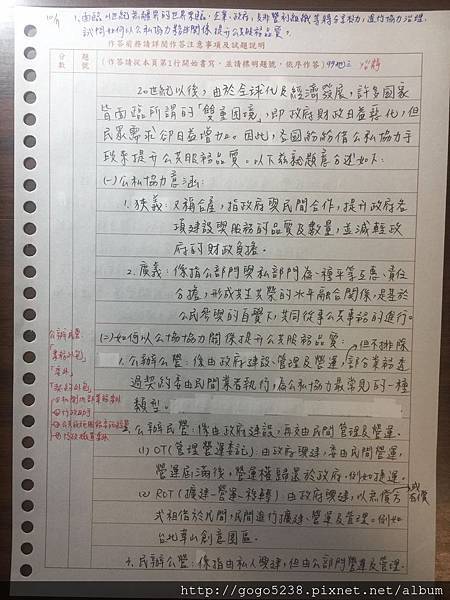 1. 面臨21世紀無疆界的世界來臨,企業、政府、非營利組織等將多重結力,進行協力治理。
試問如何以公私協力夥伴關係提升公共服務品質。
作答前務請詳閱作答注意事項及試題說明
分數
題號
(作答從本頁第1行開始書寫,並請標明題號,依序作答)
20世紀以後,由於全球化及經濟發展,許多國家
皆面臨所謂的「雙重困境」,即政府財政日益惡化,但
民眾需求卻日益增加。因此,各國紛紛借公私協力手
段來提升公共服務品質。以下茲就題意分述如下:
(一)公私協力意涵:
1. 狹義:又稱合產,指政府與民間合作,提升政府各
項建設與服務的品質及數量,並減輕政
府的財政負擔。
2. 廣義:係指公部門與私部門為一種平等互惠、責任
分擔,形成共生共榮的水平融合關係,是基於
公民參與的自覺下,共同從事公共事務的進行。
(二)如何以公協協力關係提升公共服務品質:
但不排除
1. 公辦公營:係由政府建設、管理及營運,部分業務透
過契約委由民間業者執行,為公私協力最常見的一種
類型。
2. 公辦民營:係由政府建設,再交由民間管理及營運。
(1) OT(管理營運委託):由政府興建,委由民間營運,
營運屆滿後,營運權歸還於政府。例如捷運。
(2) ROT(擴建-營運-移轉):由政府興建,以無償方
或有償
式租借於民間,民間進行擴建、營運及管理。例如
台北華山創意園區。
3. 民辦公營:係指由私人興建,但由公部門營運及管理。
公辦民營:
「業務外包」
「委外」
「契約外包」
http://gogo5238.pixnet.net/album